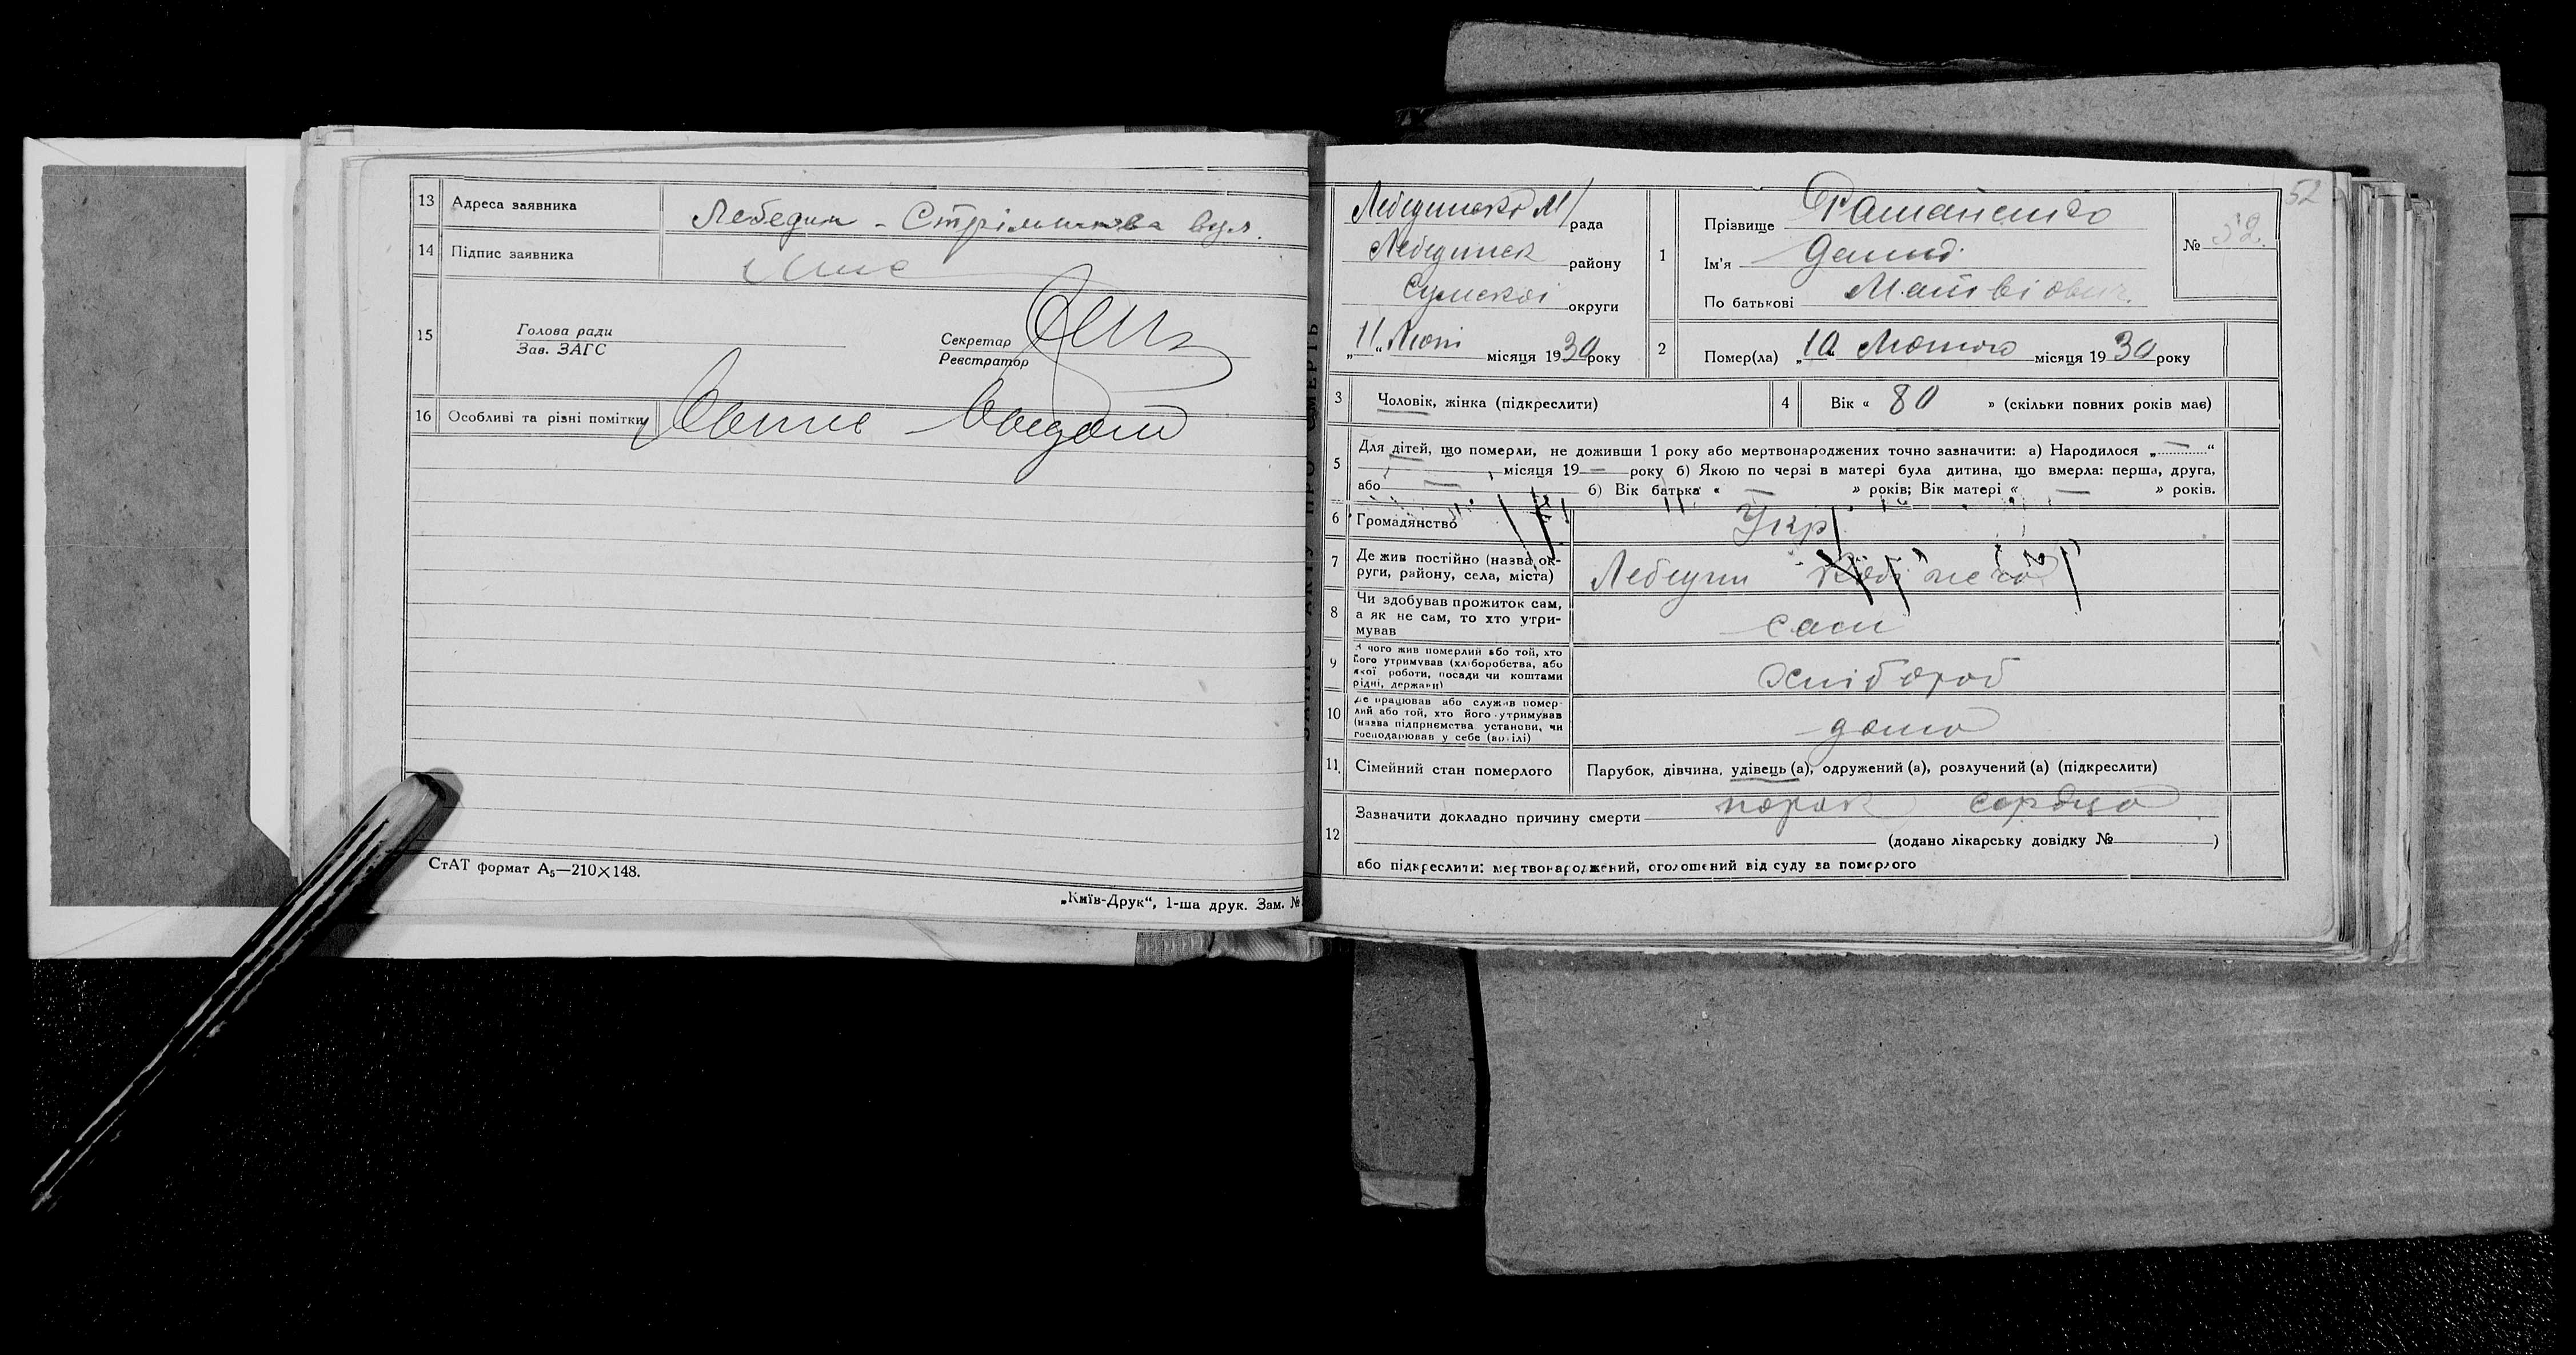 13 Адреса заявника Лебедин - Стрілникова вул.
14 Підпис заявника
15 Голова ради
Зав. ЗАГС
Секретар
Реєстратор
16 Особливі та різні помітки
СтАТ формат А₅—210×148.
„Київ-Друк“, 1-ша друк. Зам. №
52
Лебединської М/ рада
Лебединск району
Сумської округи
„11“ Лют місяця 1930 року
1 Прізвище Раманенко
Ім'я Демид
По батькові Матвіович.
№ 52
2 Помер(ла) „10 Лютого місяця 1930 року
3 Чоловік, жінка (підкреслити)
4 Вік « 80 » (скільки повних років має)
5 Для дітей, що померли, не доживши 1 року або мертвонароджених точно зазначити: а) Народилося „—“
місяця 19 — року б) Якою по черзі в матері була дитина, що вмерла: перша, друга,
або — б) Вік батька « — » років; Вік матері « — » років.
6 Громадянство Укр
7 Де жив постійно (назва округи, району, села, міста) Лебедин
8 Чи здобував прожиток сам,
а як не сам, то хто утри-
мував сам
9 З чого жив померлий або той, хто
його утримував (хліборобства, або
якої роботи, посади чи коштами
рідні, держави) Хлібороб
10 Де працював або служив помер-
лий або той, хто його утримував
(назва підприємства установи, чи
господарював у себе (артілі) дома
11 Сімейний стан померлого Парубок, дівчина, удівець (а), одружений (а), розлучений (а) (підкреслити)
12 Зазначити докладно причину смерти порок сердца
(додано лікарську довідку № )
або підкреслити: мертвонароджений, оголошений від суду за померлого